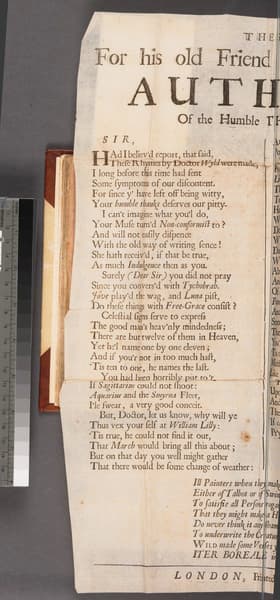 THE
For his old Friend
AUTH
Of the Humble TH
SIR,
HAd I believ'd report, that said,
These Rhymes by Doctor Wyld were made,
I long before this time had sent
Some symptoms of our discontent.
For since y' have left off being witty,
Your humble thanks deserves our pitty.
I can't imagine what you'l do,
Your Muse turn'd Non-conformist to?
And will not easily dispence
With the old way of writing sense!
She hath receiv'd, if that be true,
As much Indulgence then as you.
Surely (Dear Sir) you did not pray
Since you convers'd with Tychobrah.
Jove play'd the wag, and Luna pist,
Do these thing with Free-Grace consist?
Celestial signs serve to express
The good man's heav'nly mindedness;
There are but twelve of them in Heaven,
Yet he'l name one by one eleven;
And if you'r not in too much hast,
'Tis ten to one, he names the last.
You had been horribly put to't,
If Sagittarius could not shoot:
Aquarius and the Smyrna Fleet,
I'le swear, a very good conceit.
But, Doctor, let us know, why will ye
Thus vex your self at William Lilly:
'Tis true, he could not find it out,
That March would bring all this about;
But on that day you well might gather
That there would be some change of weather:
Ill Painters when they mak
Either of Talbot or of Swan
To satisfie all Persons
That they might
Do never think it any
To underwrite the Creatur
WILD made some Verses
ITER BOREALE
LONDON, Printed